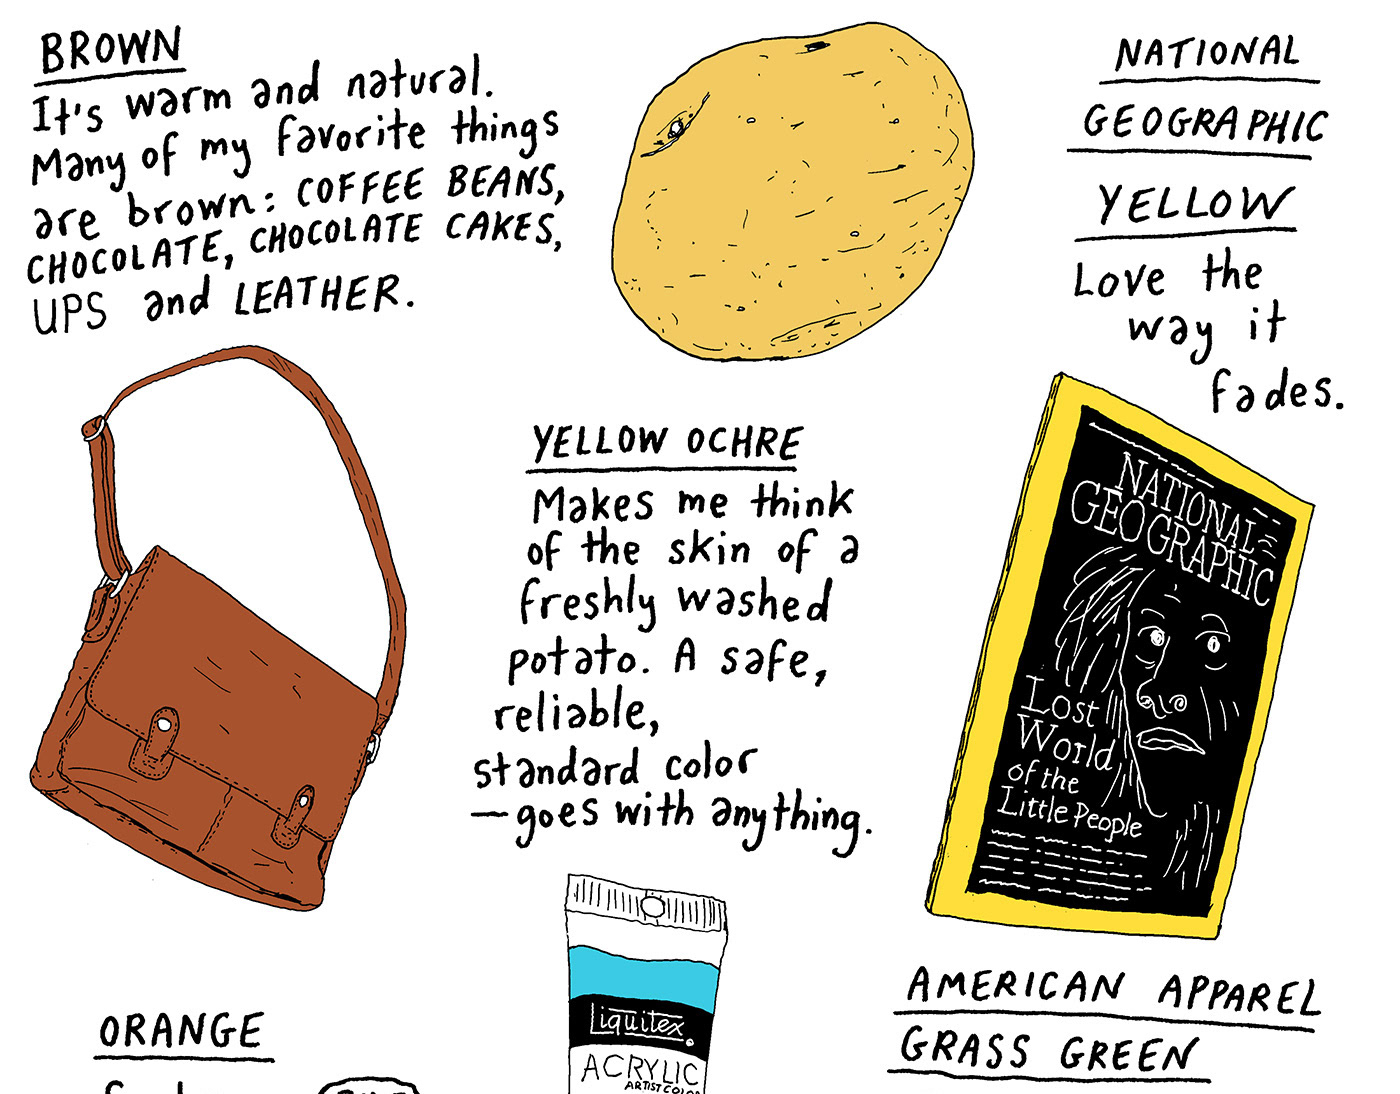 BROWN
It's warm and natural.
Many of my favorite things
are brown: COFFEE BEANS,
CHOCOLATE, CHOCOLATE CAKES,
UPS and LEATHER.
NATIONAL
GEOGRAPHIC
YELLOW
Love the
way it
fades.
YELLOW OCHRE
Makes me think
of the skin of a
freshly washed
potato. A safe,
reliable,
standard color
—goes with anything.
NATIONAL
GEOGRAPHIC
Lost
World
of the
Little People
Liquitex
ACRYLIC
ARTIST COLOR
ORANGE
AMERICAN APPAREL
GRASS GREEN